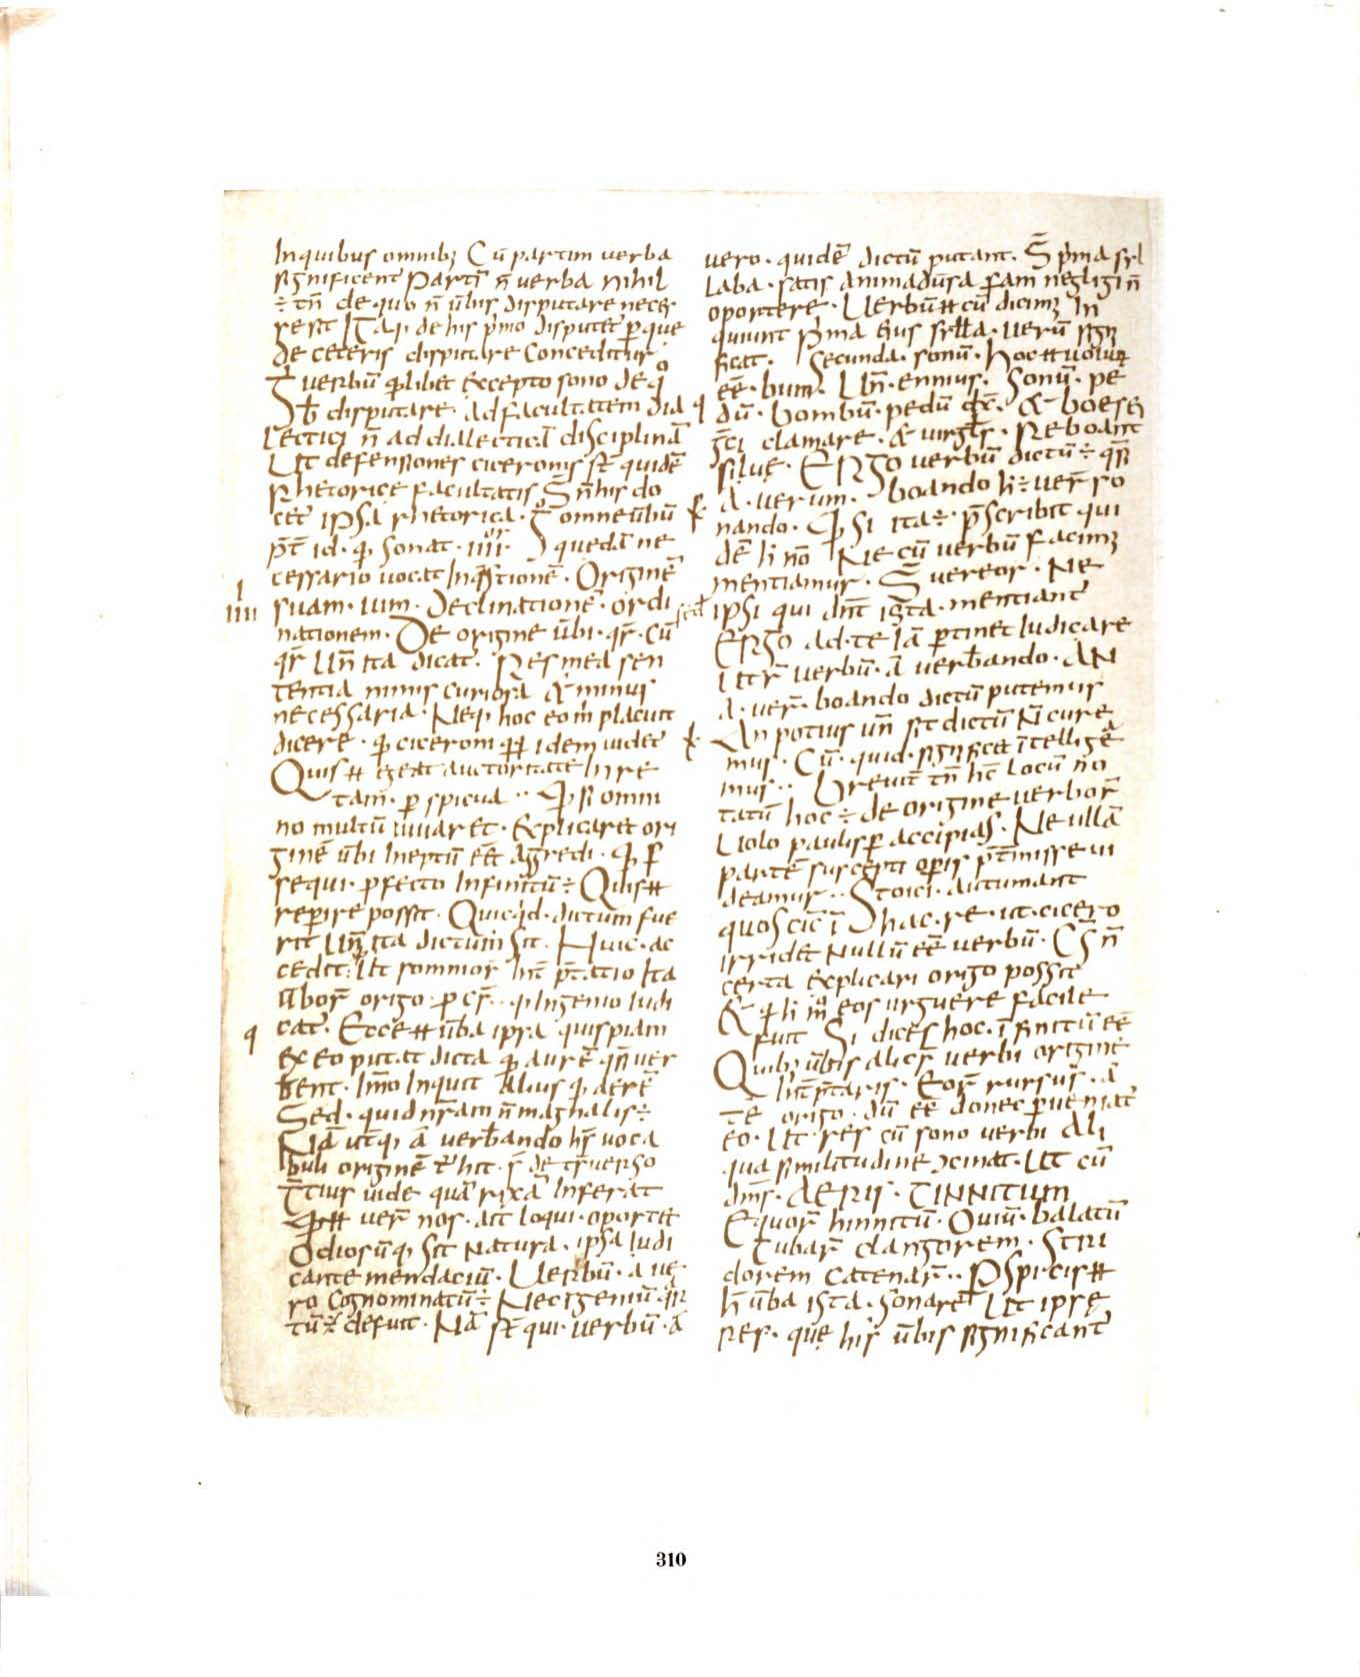 In quibus omnibꝫ Cū partim verba
significent Partī n̄ verba nihil
÷ tn̄ de quo n̄ ūbis disputare neces
se sit Itaqꝫ de his p̄mo disputet̄ p̱ que
de ceteris disputare conceditur
verbū qd̄libet excepto sono de qͦ
disputare · ad facultatem dia
lectici n̄ ad dialecticā disciplinā
Ut defensiones ciceronis st̄ quidē
Rhetorice facultatis S̄ n̄ his do
cet̄ ipsa rhetorica · omne ūbū
id · qd̄ sonat · IIII · quedā ne
cessario vocat In q̄stionē · Originē
IIII suam · uim · Declinationē · ordi
nationem · De origine ūbi · qr̄ · Cū
qr̄ Un̄ ita dicat̄ · Res mea sen
tentia nimis curiosa & minus
necessaria · Neqꝫ hoc eo m̄ placuit
dicere · qd̄ ciceroni idem videt̄
Quis egeat auctoritate In re
tam · p̱spicua ·· Qd̄ si omni
no multū iuuaret · Explicaret ori
ginē ūbi Ineptū eēt Aggredi · Qd̄
sequi p̱fecto Infinitū ÷ Quis
rep̱ire possit · Quicqd̄ · dictum fue
rit Un̄ ita dictum sit · Huic · ac
cedit · Ut somnior̄ Int̄p̄tatio Ita
ūbor̄ origo · p̱ · Ingenio Iudi
cat̄ · Ecce ūba ipsa quispiam
ex eo putat dicta qd̄ aurē quasi ver
berent · Immo Inquit Alius qd̄ aerē
Sed · quid nr̄am n̄ magna lis ÷
Nā utqꝫ ā verberando hꝰ voca
buli originē t̄hit · de t̄nsverso
t̄tius vide quā rixā Inferat
ver̄ nos · ait loqui · oportet
Odiosūqꝫ sit Natura · ipsa Iudi
cante mendaciū · Verbū · a ve
ro Cognominatū ÷ Nec Ingeniū
tū defuit · Nā st̄ qui verbū · ā
vero · quidē dictū putant · S̄ p̄ma syl
laba · satis animadūsa p̱am negligi n̄
oportere · Verbū cū dicimꝰ In
quiunt p̄ma eius syllā · verū sign
ficat · Secunda · sonū · hoc volunt
eē · bum · Un̄ · ennius · Sonū · pe
dū · bombū · pedū · & boesē
clamare · & virgls · Reboant
silvę · Ergo verbū dictū ÷ quasi
A · verum · boando h̄ ÷ ver̄ so
nando · Qd̄ si ita ÷ p̄scribit qui
dē h̄ nō Ne cū verbū facimꝰ
mentiamur · S̄ vereor · Ne
sed ipsi qui dn̄t ista · mentiant̄
Ergo ad · te Iā p̱tinet Iudicare
Utr̄ verbū · ā verberando · AN
A · ver̄ · boando dictū putemus
An potius un̄ sit dictū N̄ cure
mus · Cū · quid · significet Intelligē
mus ·· Breuit̄ tn̄ hc̄ locū nō
tatū hoc ÷ de origine verbor̄
Volo paulisp̱ accipias · Ne ullā
partē suscepti op̱is p̄t̄misse vi
deamur ·· Stoici · autumant
quos cic̄ ī hac · re · ut · cicero
irridet Nullū eē verbū · Cꝰ n̄
certa explicari origo possit
& qd̄ h̄ mͦ eos urguere facile
fuit Si dices hoc · Infinitū eē
Quibꝫ ūbis alicꝰ verbi originē
Int̄p̄taris · Eor̄ rursus · ā
te origo · dū eē donec p̱ueniat̄
eo · Ut res cū sono verbi Ali
qua similitudine Ↄcinat · Ut cū
dīmꝰ · AERIS · TINNITUM
Equor̄ hinnitū · Ouiū · balatū
Tubar̄ clangorem · Stri
dorem catenar̄ ·· P̱spicis
h̄ ūba ista · Sonare Ut ipsę
Res · quę his ūbis significant̄
310